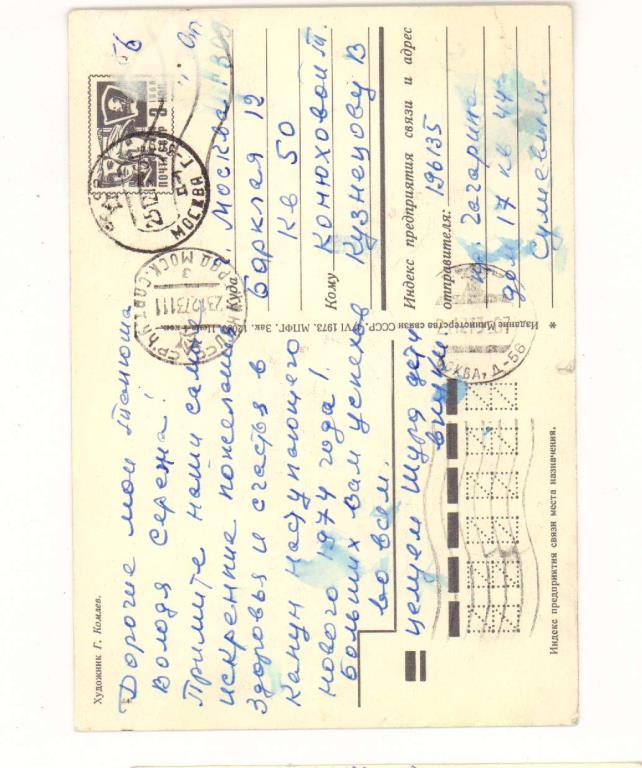 Художник Г. Комлев.
Дорогие мои Танюша
Володя Сережа!
Примите наши самые
искренние пожелания
здоровья и счастья в
канун наступающего
нового 1974 года!
больших вам успехов
во всем.
целуем Шура дети
внуки.
Издание Министерства связи СССР. VI 1973. МПФГ. Зак.
ПОЧТА СССР
МОСКВА
Куда г. Москва
Барклая 12
кв 50
Кому Конюховой Т.
Кузнецову В
Индекс предприятия связи и адрес
отправителя: 196135
пр. Гагарина
дом 17 кв 44
МОСКВА, Д-56
Индекс предприятия связи места назначения.